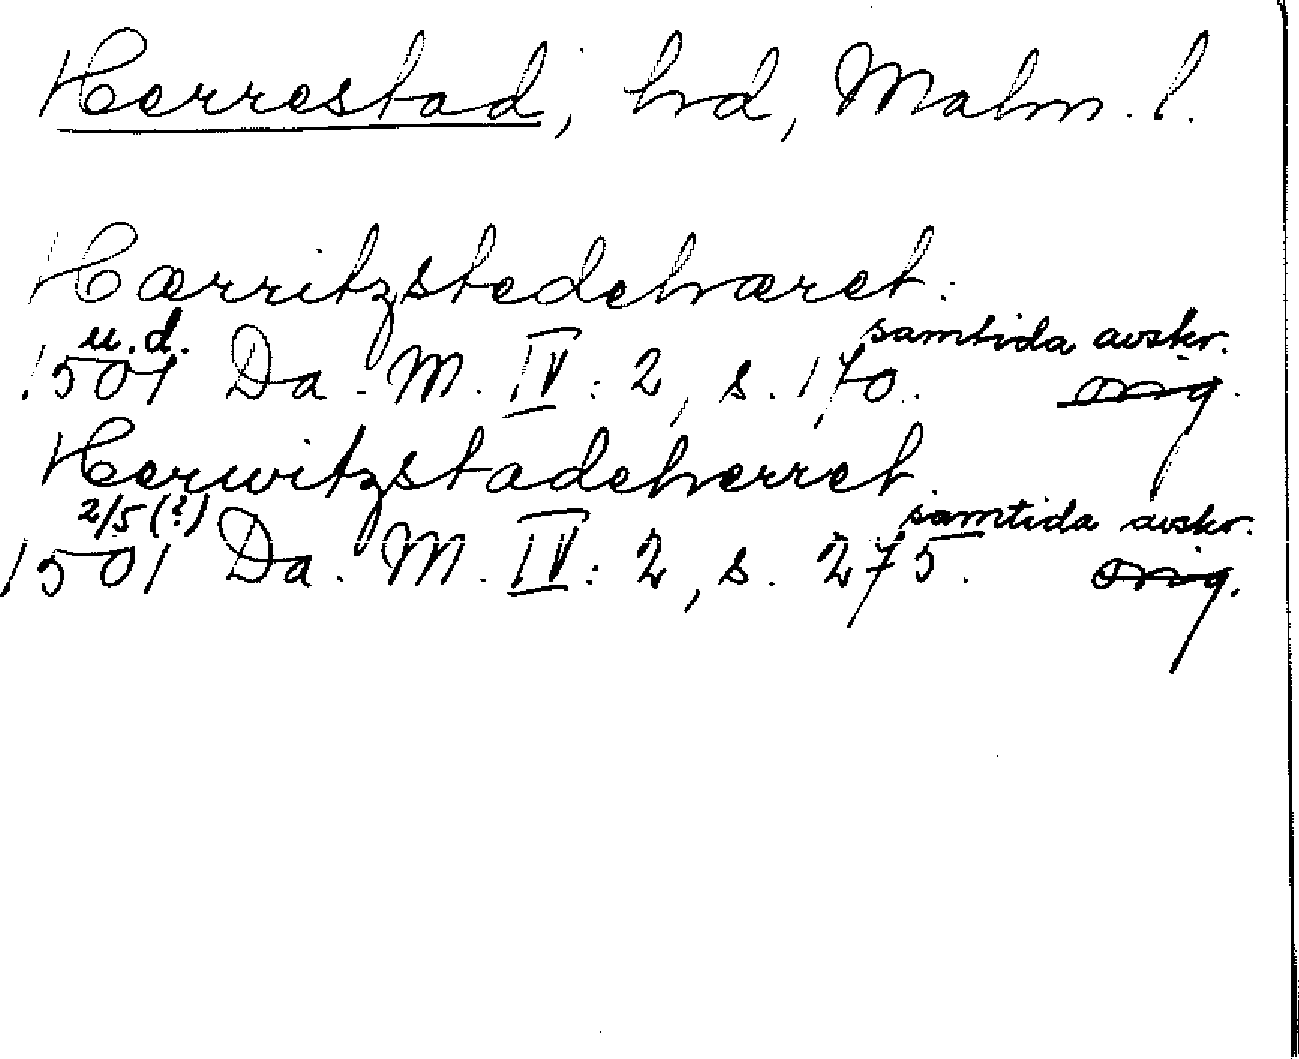 Herrestad, hd, Malm. l.
Hærritzstedehæret:
u. d. samtida avskr.
1501 Da. M. IV: 2, s. 170. orig.
Herwitzstadeherret
2/5 (?) samtida avskr.
1501 Da. M. IV: 2, s. 275. orig.